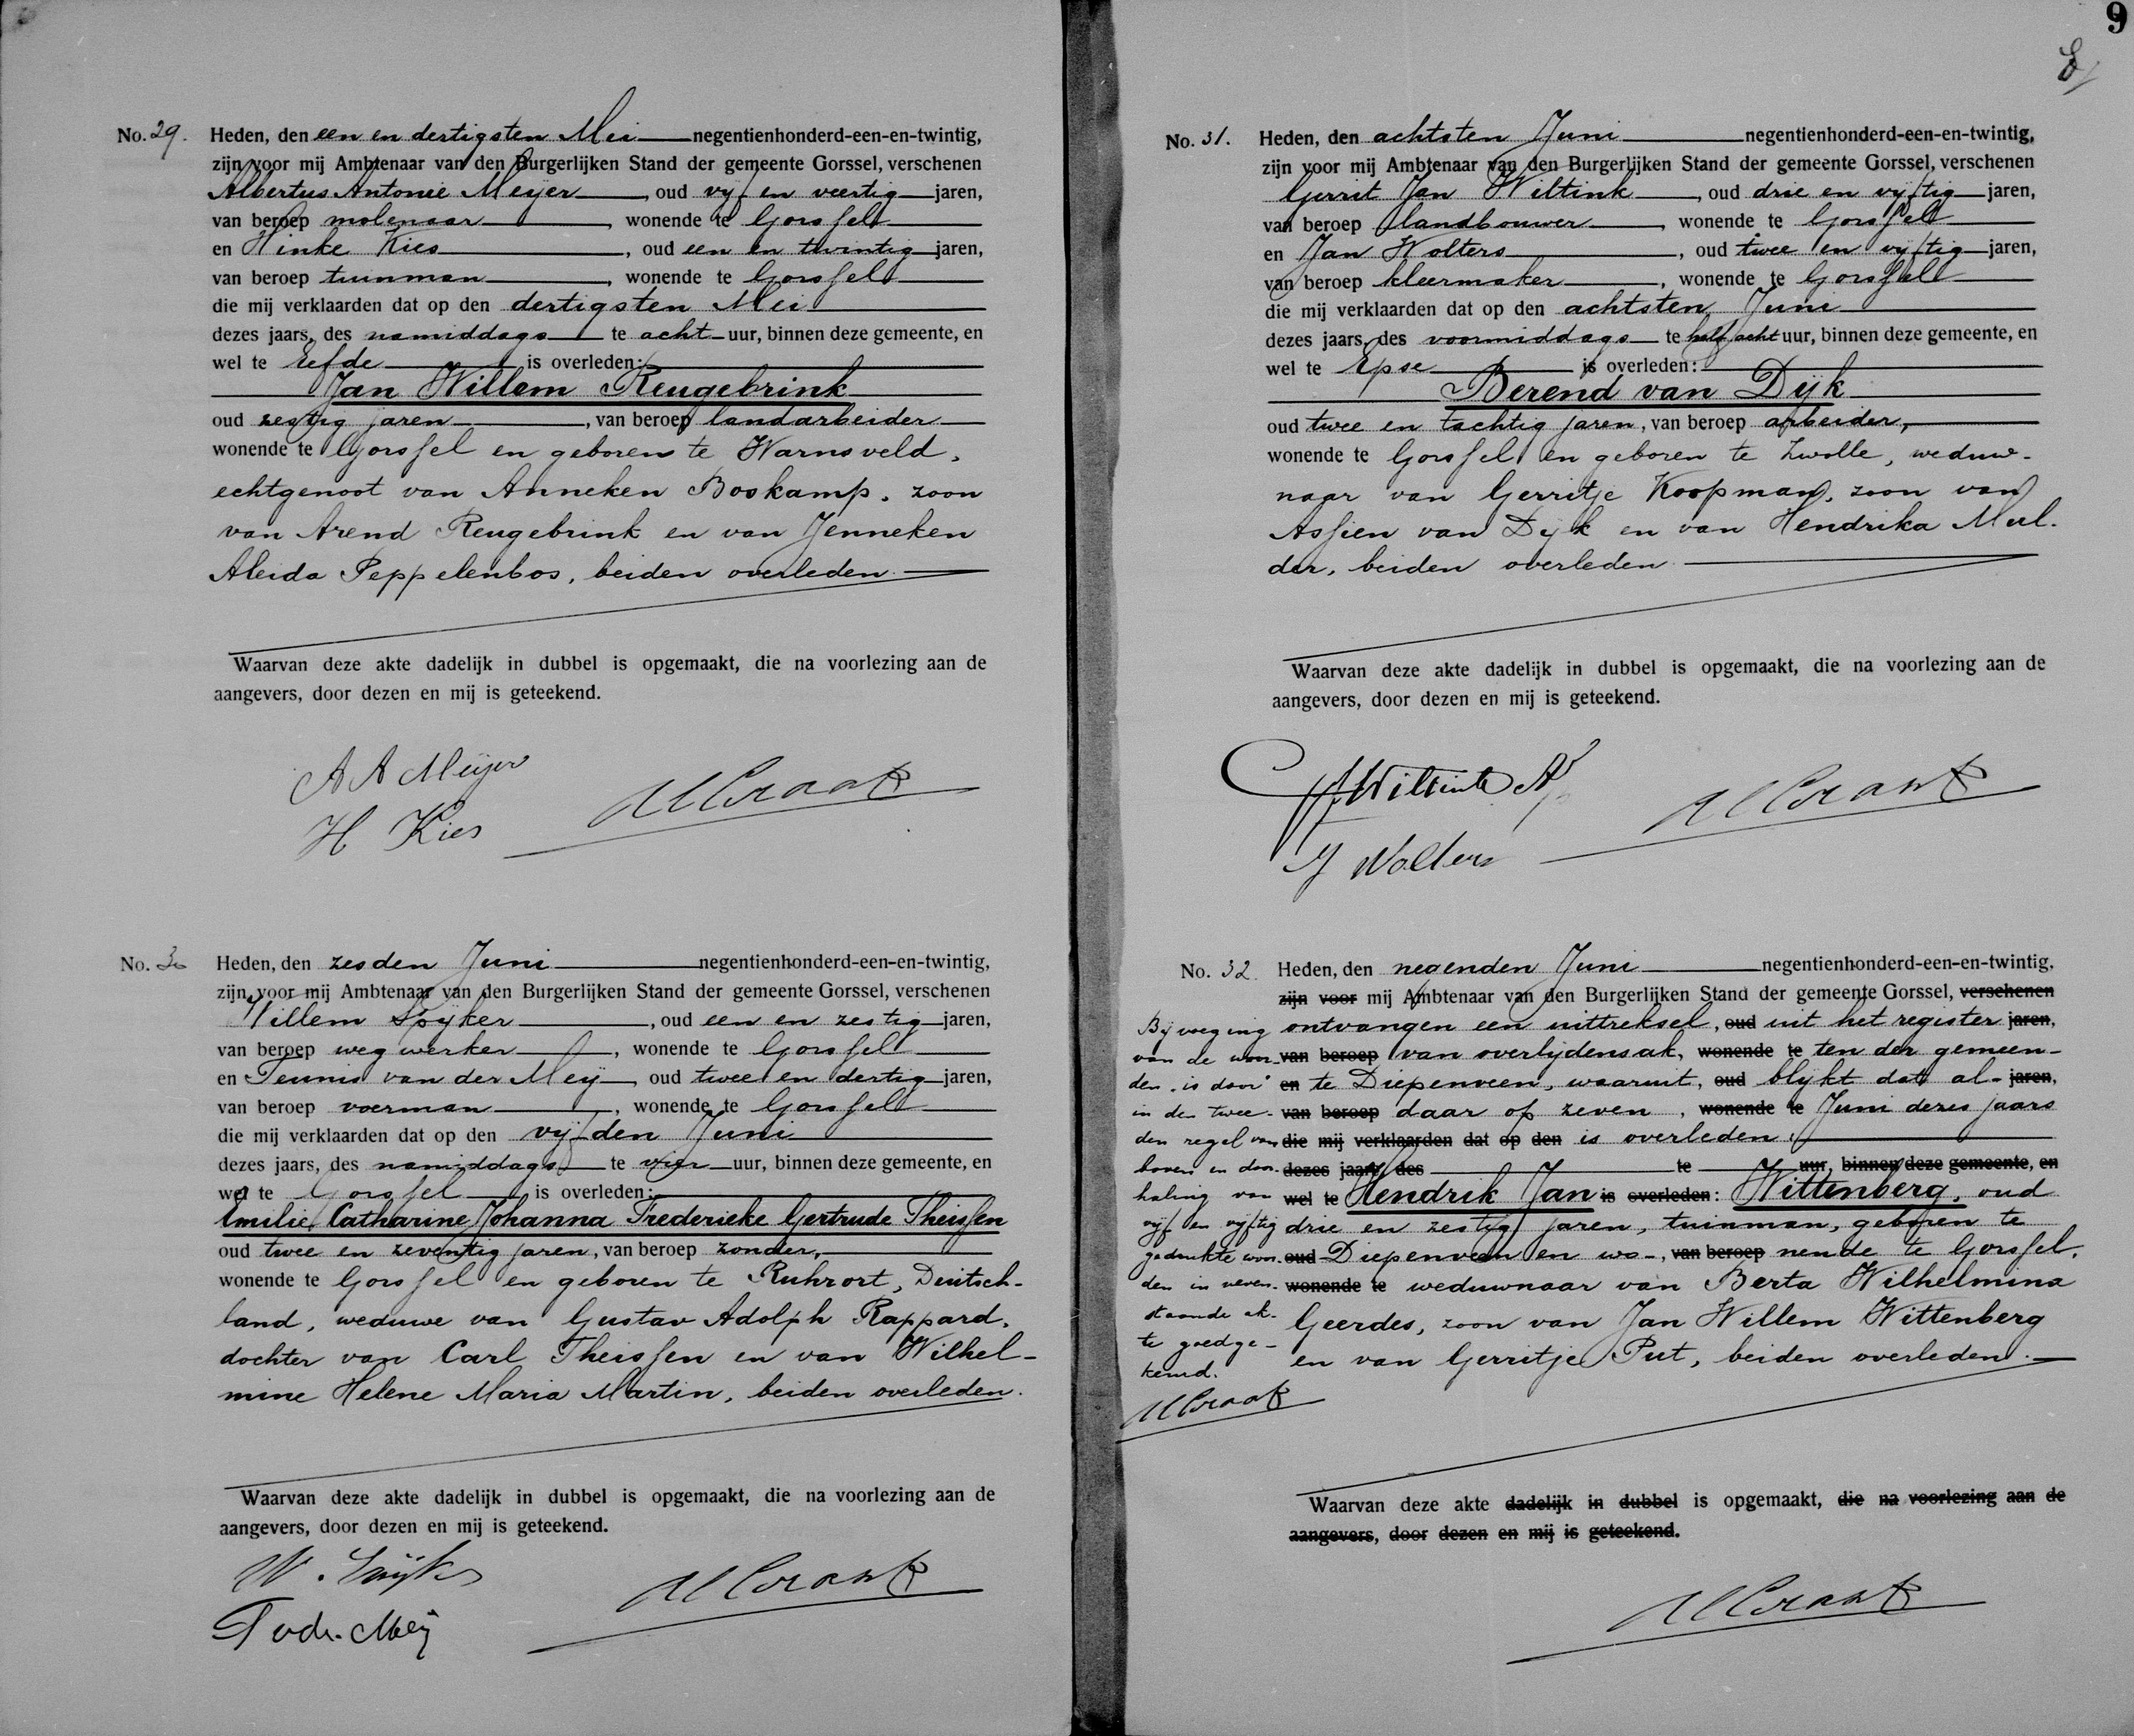 No. 29. Heden, den een en dertigsten Mei negentienhonderd-een-en-twintig,
zijn voor mij Ambtenaar van den Burgerlijken Stand der gemeente Gorssel, verschenen
Albertus Antonie Meijer, oud vijf en veertig jaren,
van beroep molenaar, wonende te Gorssel
en Hinke Kies, oud een en twintig jaren,
van beroep tuinman, wonende te Gorssel
die mij verklaarden dat op den dertigsten Mei
dezes jaars, des namiddags te acht uur, binnen deze gemeente, en
wel te Eefde is overleden:
Jan Willem Reugebrink
oud zestig jaren, van beroep landarbeider
wonende te Gorssel en geboren te Warnsveld,
echtgenoot van Anneken Boskamp, zoon
van Arend Reugebrink en van Jenneken
Aleida Peppelenbos, beiden overleden.
Waarvan deze akte dadelijk in dubbel is opgemaakt, die na voorlezing aan de
aangevers, door dezen en mij is geteekend.
A A Meijer
H Kies
No. 30 Heden, den zesden Juni negentienhonderd-een-en-twintig,
zijn voor mij Ambtenaar van den Burgerlijken Stand der gemeente Gorssel, verschenen
Willem Spijker, oud een en zestig jaren,
van beroep wegwerker, wonende te Gorssel
en Teunis van der Meij, oud twee en dertig jaren,
van beroep voerman, wonende te Gorssel
die mij verklaarden dat op den vijfden Juni
dezes jaars, des namiddags te vier uur, binnen deze gemeente, en
wel te Gorssel is overleden:
Emilie Catharine Johanna Frederieke Gertrude Theissen
oud twee en zeventig jaren, van beroep zonder,
wonende te Gorssel en geboren te Ruhrort, Duitsch-
land, weduwe van Gustav Adolph Rappard,
dochter van Carl Theissen en van Wilhel-
mine Helene Maria Martin, beiden overleden.
Waarvan deze akte dadelijk in dubbel is opgemaakt, die na voorlezing aan de
aangevers, door dezen en mij is geteekend.
T vdr. Meij
9
No. 31. Heden, den achtsten Juni negentienhonderd-een-en-twintig,
zijn voor mij Ambtenaar van den Burgerlijken Stand der gemeente Gorssel, verschenen
Gerrit Jan Wiltink, oud drie en vijftig jaren,
van beroep landbouwer, wonende te Gorssel
en Jan Wolters, oud twee en vijftig jaren,
van beroep kleermaker, wonende te Gorssel
die mij verklaarden dat op den achtsten Juni
dezes jaars, des voormiddags te half acht uur, binnen deze gemeente, en
wel te Epse is overleden:
Berend van Dijk
oud twee en tachtig jaren, van beroep arbeider,
wonende te Gorssel en geboren te Zwolle, weduw-
naar van Gerritje Koopman, zoon van
Assien van Dijk en van Hendrika Mul-
der, beiden overleden
Waarvan deze akte dadelijk in dubbel is opgemaakt, die na voorlezing aan de
aangevers, door dezen en mij is geteekend.
J Wolters
No. 32 Heden, den negenden Juni negentienhonderd-een-en-twintig,
zijn voor mij Ambtenaar van den Burgerlijken Stand der gemeente Gorssel, verschenen
ontvangen een uittreksel, oud uit het register jaren,
van beroep van overlijdensak, wonende te ten der gemeen-
en te Diepenveen, waaruit, oud blijkt dat al- jaren,
van beroep daar op zeven, wonende te Juni dezes jaars
die mij verklaarden dat op den is overleden:
dezes jaars, des te uur, binnen deze gemeente, en
wel te Hendrik Jan is overleden: Wittenberg, oud
drie en zestig jaren, tuinman, geboren te
oud Diepenveen en wo-, van beroep nende te Gorssel,
wonende te weduwnaar van Berta Wilhelmina
Geerdes, zoon van Jan Willem Wittenberg
en van Gerritje Put, beiden overleden.
Bijvoeging
van de woor-
den "is door"
in de twee-
den regel van
boven en door-
haling van
vijf en vijftig
gedrukte woor-
den in neven-
staande ak-
te goedge-
keurd.
Waarvan deze akte dadelijk in dubbel is opgemaakt, die na voorlezing aan de
aangevers, door dezen en mij is geteekend.